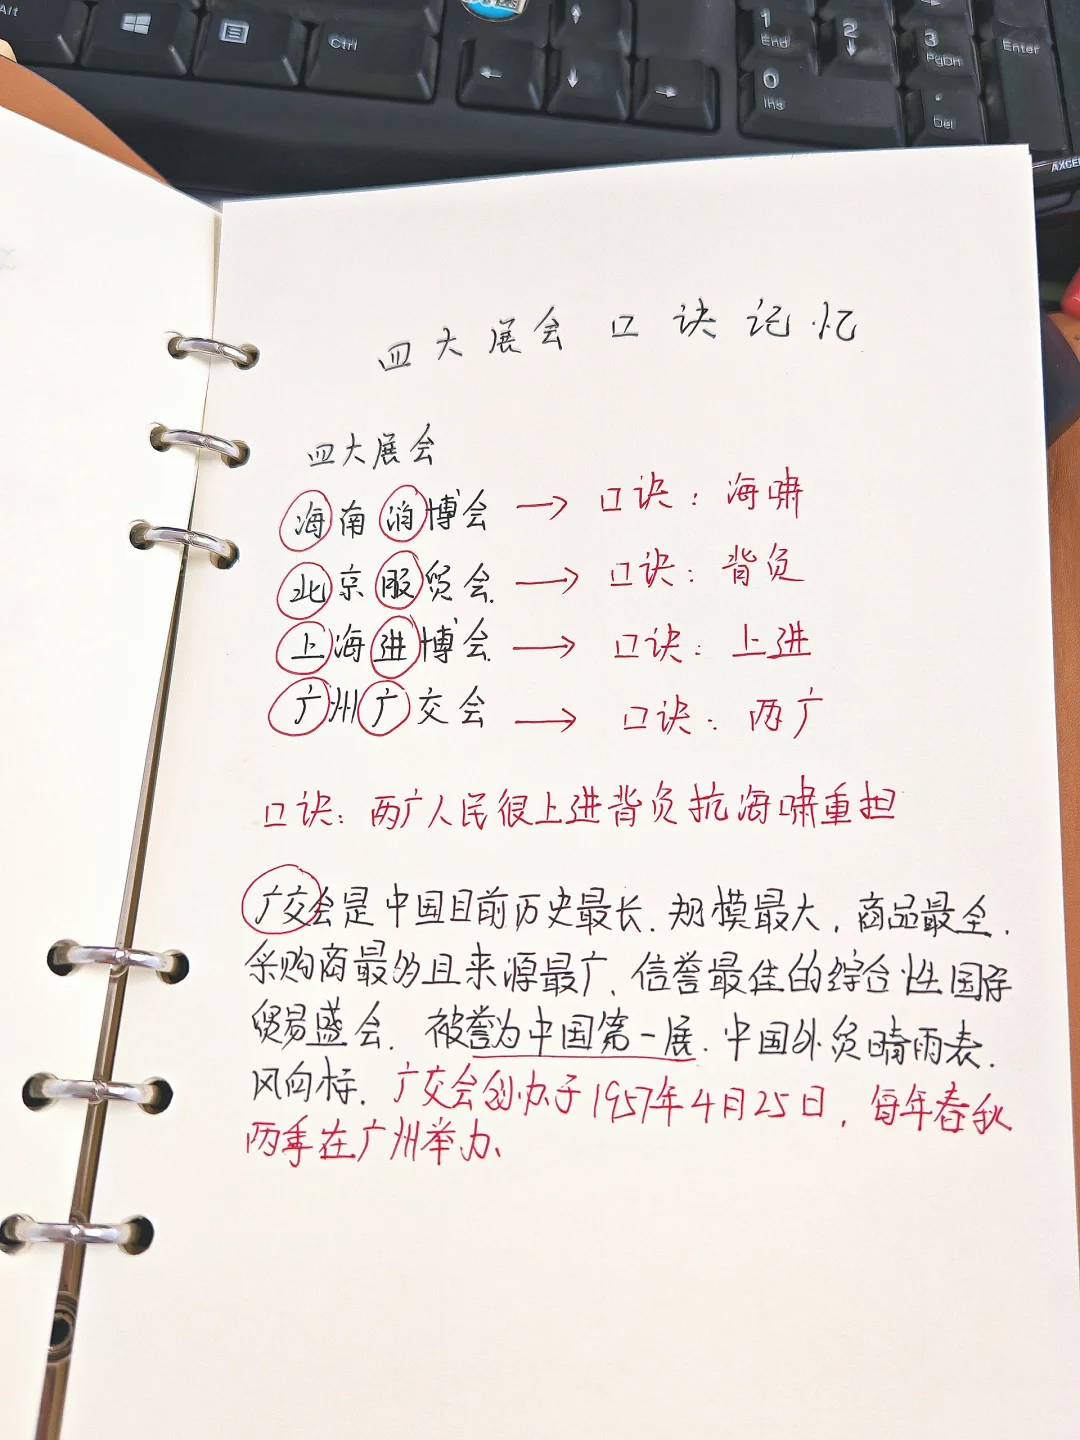 Alt
Ctrl
1
End
2
3
PgDn
Enter
0
Ins
.
Del
AXCEL
四大展会口诀记忆
四大展会
海南消博会 → 口诀：海啸
北京服贸会. → 口诀：背负
上海进博会. → 口诀：上进
广州广交会 → 口诀：两广
口诀：两广人民很上进背负抗海啸重担
广交会是中国目前历史最长.规模最大，商品最全.
采购商最多且来源最广.信誉最佳的综合性国际
贸易盛会.被誉为中国第一展.中国外贸晴雨表.
风向标.广交会创办于1957年4月25日，每年春秋
两季在广州举办、